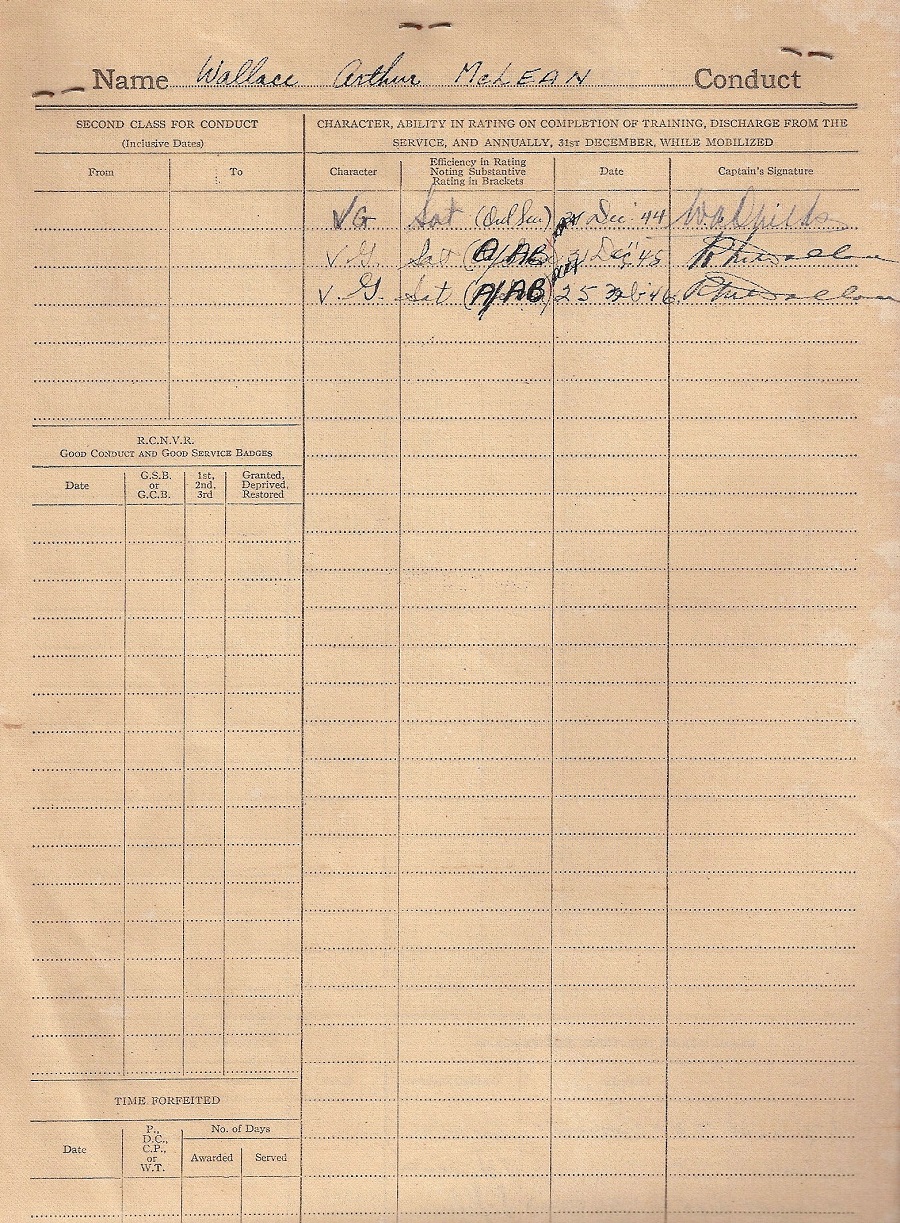 Name Wallace Arthur McLEAN Conduct
SECOND CLASS FOR CONDUCT
(Inclusive Dates)
From To
CHARACTER, ABILITY IN RATING ON COMPLETION OF TRAINING, DISCHARGE FROM THE
SERVICE, AND ANNUALLY, 31ST DECEMBER, WHILE MOBILIZED
Character
Efficiency in Rating
Noting Substantive
Rating in Brackets
Date
Captain's Signature
VG Sat (Ord Sea) 31 Dec 44
V.G. Sat (A/AB) 31 Dec '45
V.G. Sat (A/AB) 25 46
R.C.N.V.R.
GOOD CONDUCT AND GOOD SERVICE BADGES
Date
G.S.B.
or
G.C.B.
1st,
2nd,
3rd
Granted,
Deprived,
Restored
TIME FORFEITED
Date
P.,
D.C.,
C.P.,
or
W.T.
No. of Days
Awarded Served